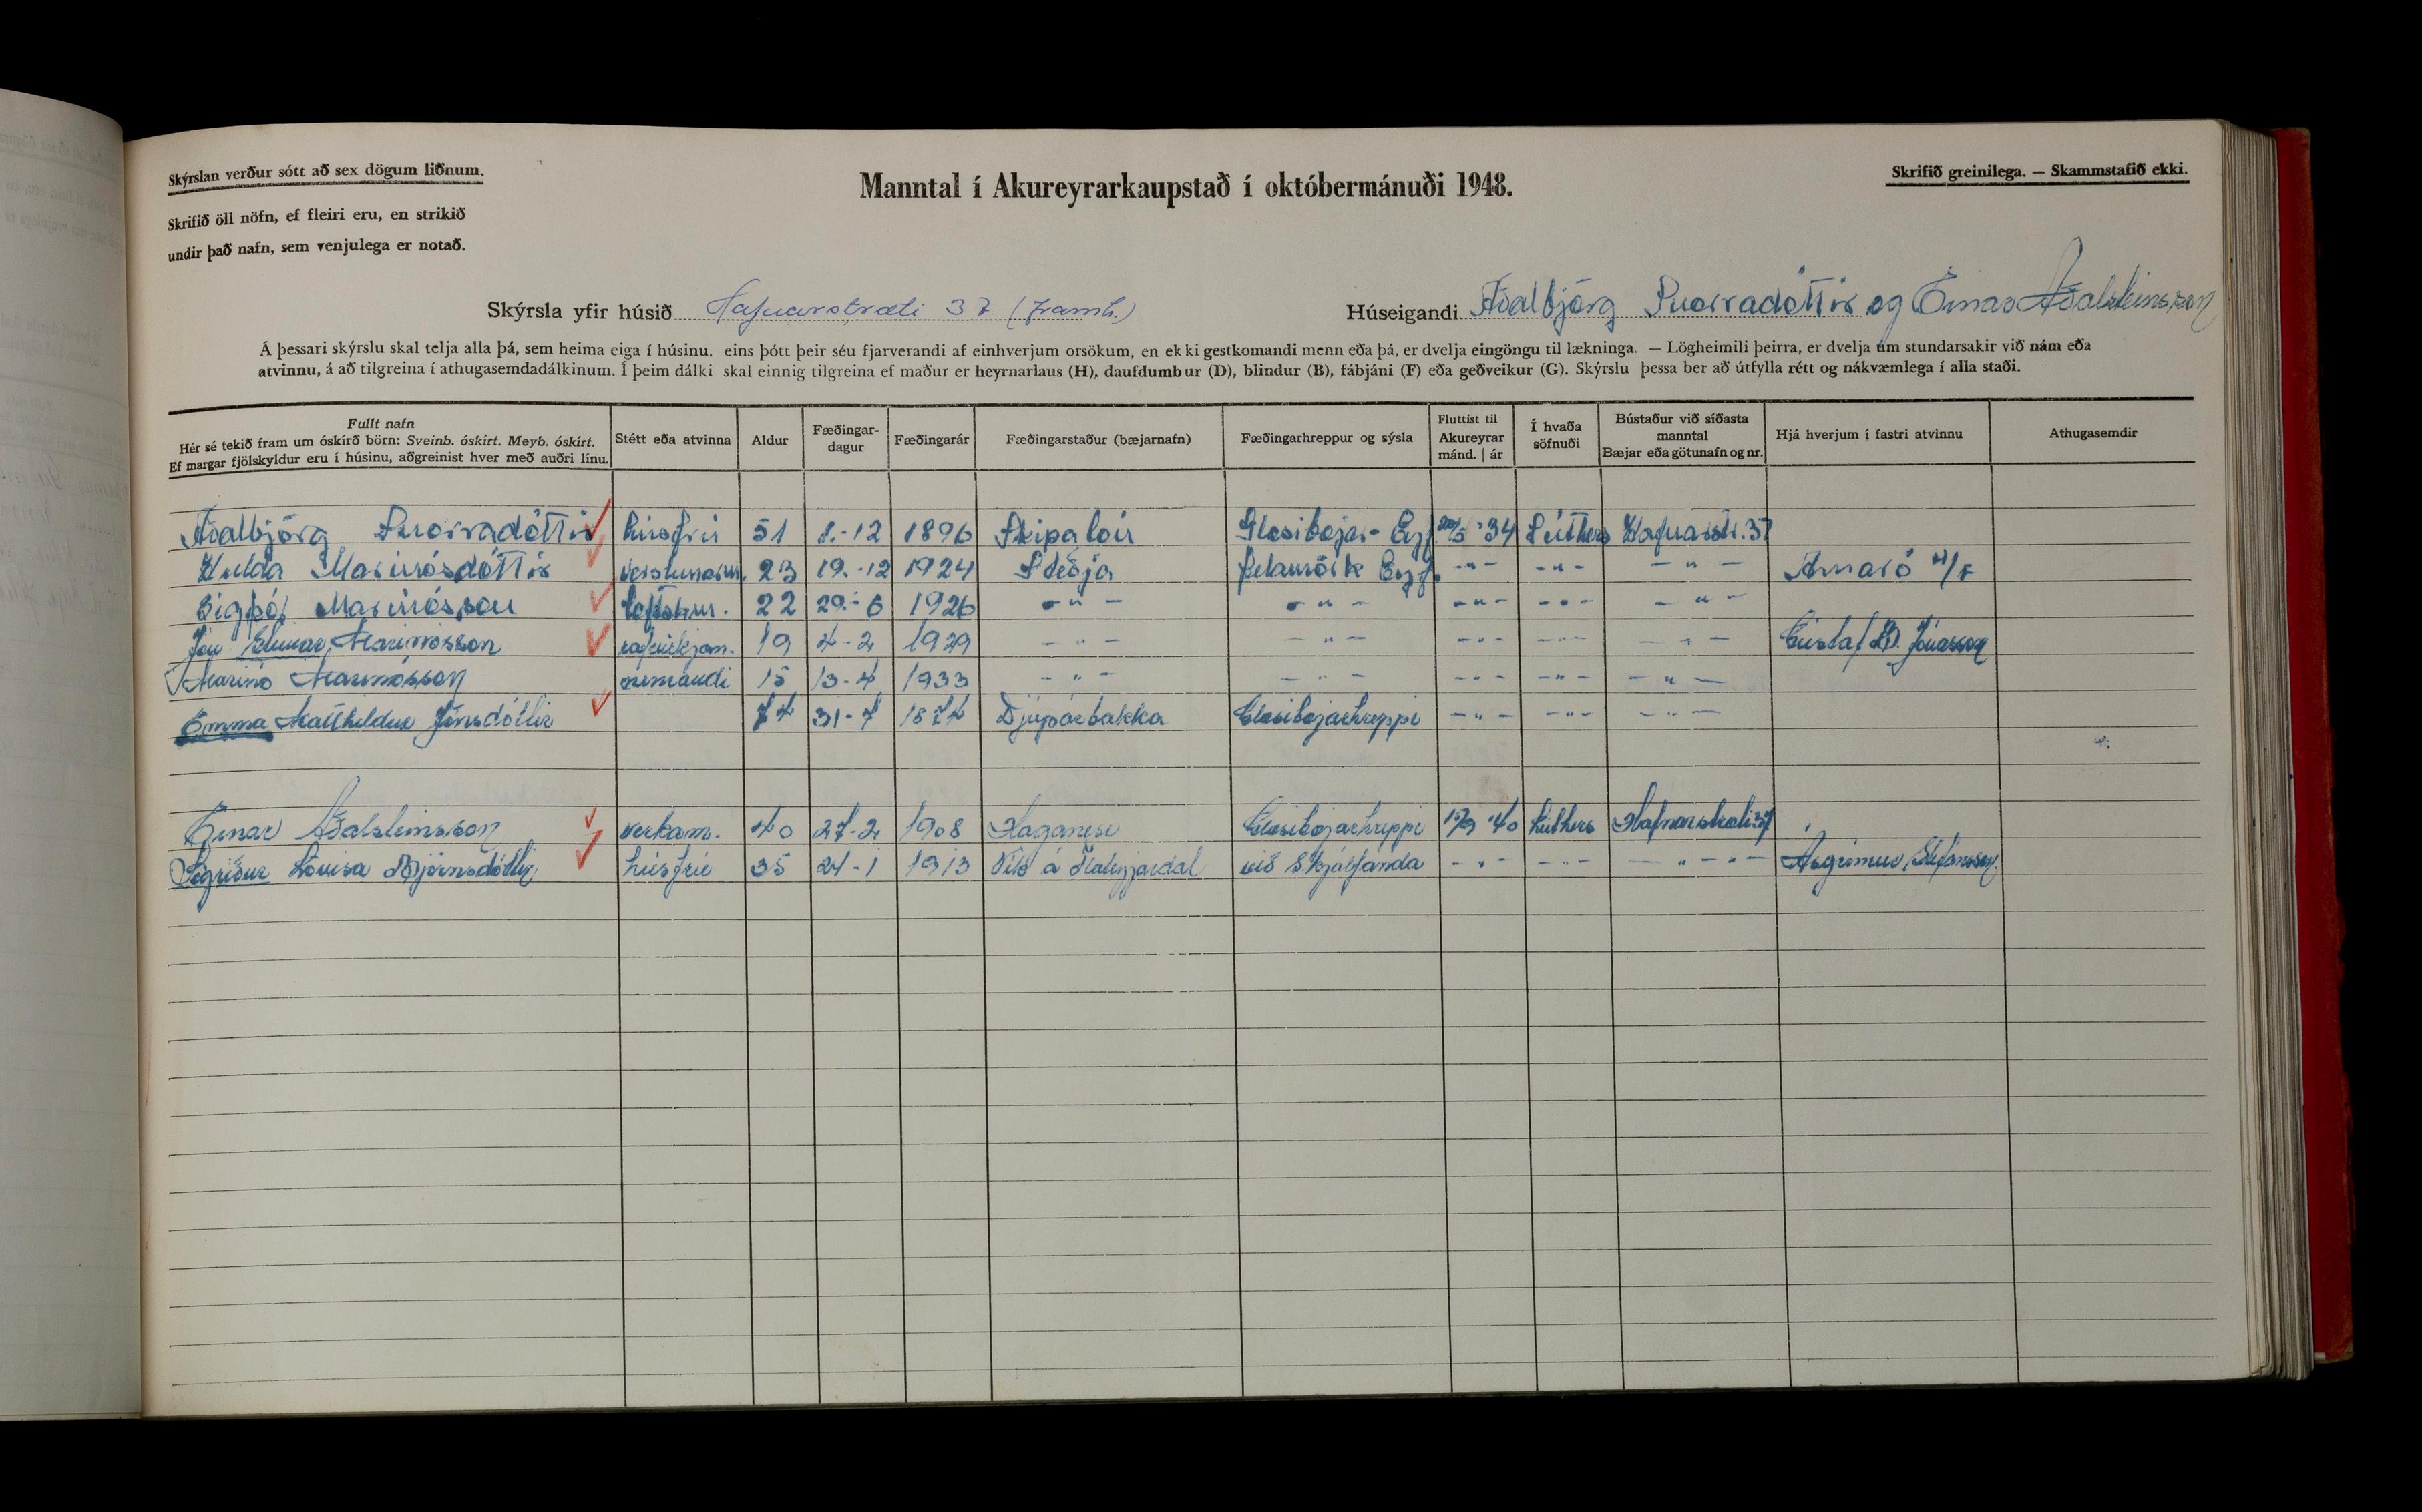 Skýrslan verður sótt að sex dögum liðnum.
Skrifið öll nöfn, ef fleiri eru, en strikið
undir það nafn, sem venjulega er notað.
Manntal í Akureyrarkaupstað í októbermánuði 1948.
Skrifið greinilega. — Skammstafið ekki.
Skýrsla yfir húsið Hafnarstræti 37 (framh.)
Húseigandi Aðalbjörg Snorradóttir og Einar Aðalsteinsson
Á þessari skýrslu skal telja alla þá, sem heima eiga í húsinu, eins þótt þeir séu fjarverandi af einhverjum orsökum, en ekki gestkomandi menn eða þá, er dvelja eingöngu til lækninga. — Lögheimili þeirra, er dvelja um stundarsakir við nám eða
atvinnu, á að tilgreina í athugasemdadálkinum. Í þeim dálki skal einnig tilgreina ef maður er heyrnarlaus (H), daufdumbur (D), blindur (B), fábjáni (F) eða geðveikur (G). Skýrslu þessa ber að útfylla rétt og nákvæmlega í alla staði.
Fullt nafn
Hér sé tekið fram um óskírð börn: Sveinb. óskírt. Meyb. óskírt.
Ef margar fjölskyldur eru í húsinu, aðgreinist hver með auðri línu.
Stétt eða atvinna
Aldur
Fæðingar-
dagur
Fæðingarár
Fæðingarstaður (bæjarnafn)
Fæðingarhreppur og sýsla
Fluttist til
Akureyrar
mánd. | ár
Í hvaða
söfnuði
Bústaður við síðasta
manntal
Bæjar eða götunafn og nr.
Hjá hverjum í fastri atvinnu
Athugasemdir
Aðalbjörg Snorradóttir húsfrú 51 1.-12 1896 Skipalón Glæsibæjar- Eyf. '34 Lúthers Hafnarstr. 37
Hulda Marinósdóttir verslunarm. 23 19.-12 1924 Steðja Þelamörk Eyf. -"- -"- -"- Amaró H/F
Sigþór Marinósson 22 29.-6 1926 -"- -"- -"- -"- -"-
Jón Elmar Marinósson rafvirkjan. 19 4-2 1929 -"- -"- -"- -"- -"- Gústaf B. Jónasson
Marinó Marinósson nemandi 15 13-4 1933 -"- -"- -"- -"- -"-
Emma Matthildur Jónsdóttir 74 31-7 1874 Djúpárbakka Glæsibæjarhreppi -"- -"- -"-
Einar Aðalsteinsson verkam. 40 27-2 1908 Haganesi Glæsibæjarhreppi 15/9 '40 Lúthers Hafnarstræti 37
Sigríður Lovísa Björnsdóttir húsfrú 35 24-1 1913 Vík á Flateyjardal við Skjálfanda -"- -"- -"- Ásgrímur Stefánsson